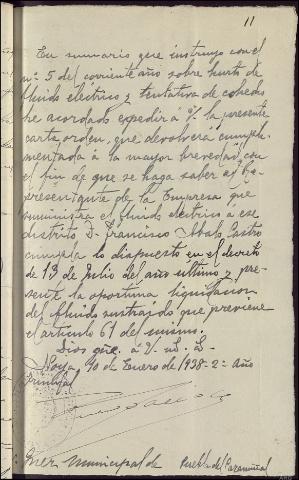 11
En sumario que instruyo con el
nº 5 del corriente año sobre hurto de
fluido eléctrico y tentativa de cohecho
he acordado expedir a V. la presente
carta orden, que devolverá cumpli-
mentada á la mayor brevedad, con
el fin de que se haga saber al Re-
presentante de la Empresa que
suministra el fluido eléctrico á ese
distrito D. Francisco Abalo Castro
cumpla lo dispuesto en el decreto
de 13 de Julio del año último y pre-
sente la oportuna liquidacion
del fluido sustraido que previene
el articulo 61 del mismo.
Dios gue. á V. m. a.
Noya 10 de Enero de 1938-2º Año
Triunfal
Juez Municipal de Puebla del Caramiñal